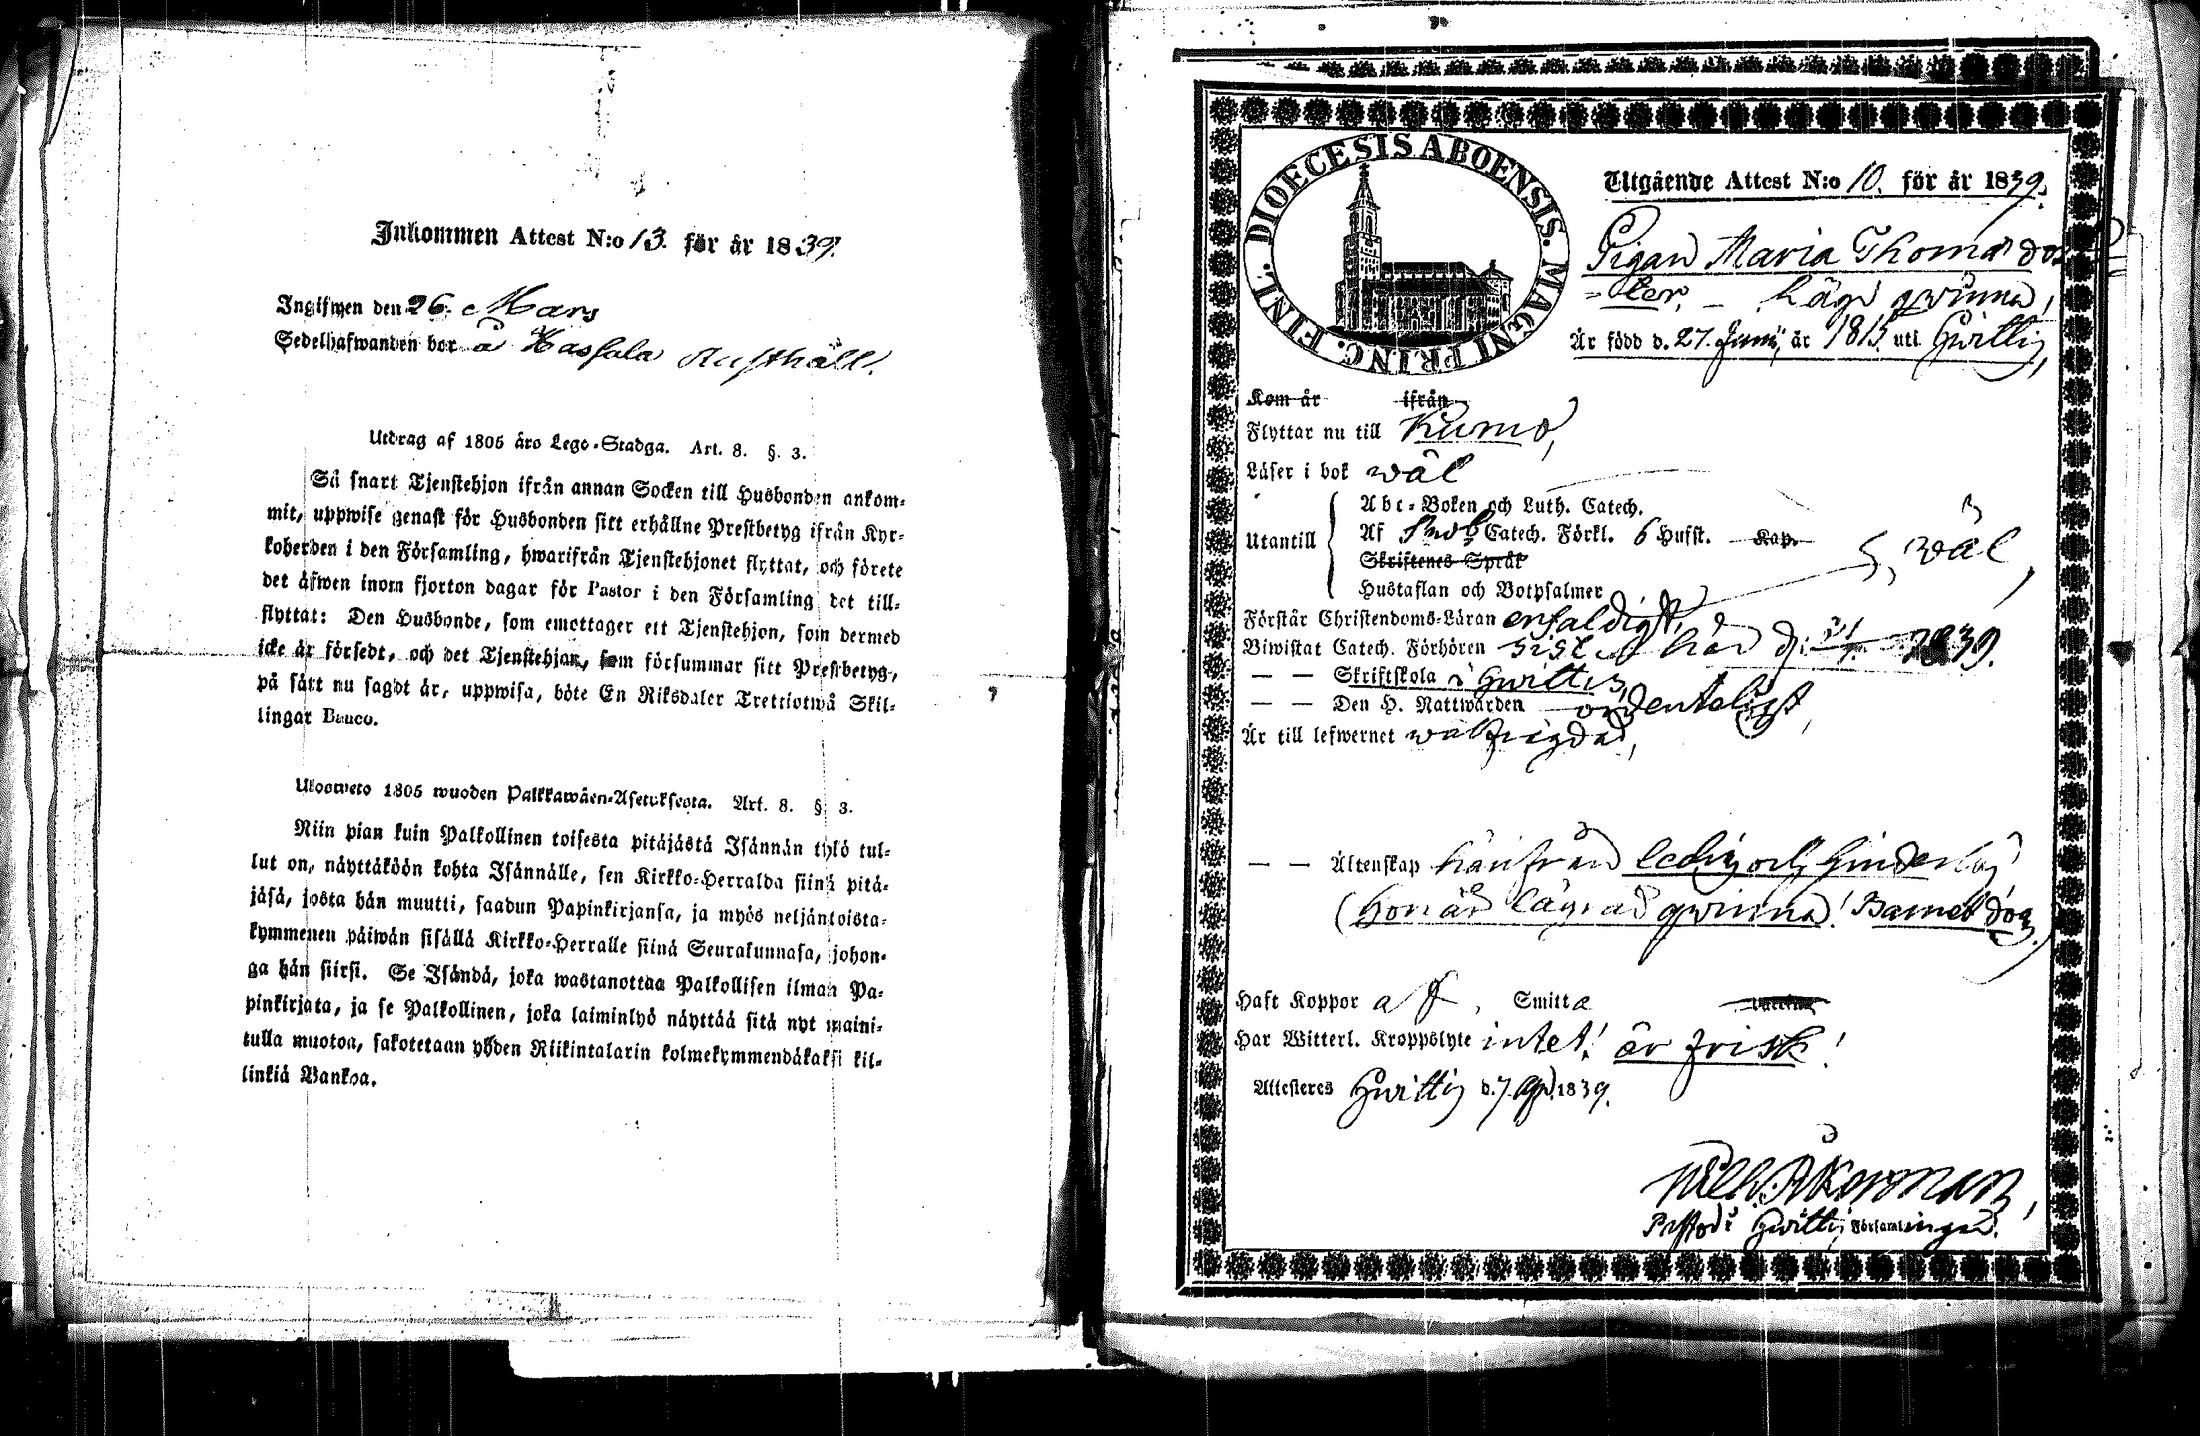 Inkommen Attest N:o 13. för år 1839.
Ingifwen den 26. Mars
Sedelhafwanden bor å Kassala Rusthåll.
Utdrag af 1805 års Lego-Stadga. Art. 8. §. 3.
Så snart Tjenstehjon ifrån annan Socken till Husbonden ankom-
mit, uppwise genast för Husbonden sitt erhållne Prestbetyg ifrån Kyr-
koherden i den Församling, hwarifrån Tjenstehjonet flyttat, och förete
det äfwen inom fjorton dagar för Pastor i den Församling det till-
flyttat: Den Husbonde, som emottager ett Tjenstehjon, som dermed
icke är försedt, och det Tjenstehjon, som försummar sitt Prestbetyg,
på sätt nu sagdt är, uppwisa, böte En Riksdaler Trettiotwå Skil-
lingar Banco.
Ulosweto 1805 wuoden Palkkawäen-Asetuksesta. Art. 8. §. 3.
Niin pian kuin Palkollinen toisesta pitäjästä Isännän tyló tul-
lut on, näyttäköön kohta Isännälle, sen Kirkko-Herralda siinä pitä-
jäsä, josta hän muutti, saadun Papinkirjansa, ja myös neljäntoista-
kymmenen päiwän sisällä Kirkko-Herralle siinä Seurakunnasa, johon-
ga hän siirsi. Se Isändä, joka wastanottaa Palkollisen ilman Pa-
pinkirjata, ja se Palkollinen, joka laiminlyö näyttää sitä nyt maini-
tulla muotoa, sakotetaan yhden Riikintalarin kolmekymmendäkaksi kil-
linkiä Bankoa.
DIOECESIS ABOENSIS. MAGNI PRINC. FINL.
Utgående Attest N:o 10. för år 1839.
Pigan Maria Thomas dot-
=ter, – lägd qwinna,
Är född d. 27. Junii, år 1815 uti Hwittis,
Kom år ifrån
Flyttar nu till Kumo,
Läser i bok wäl
Abc-Boken och Luth. Catech.
Utantill Af Catech. Förkl. 6 Hufst. Kap. wäl,
Skriftenes Språk
Hustaflan och Botpsalmer
Förstår Christendoms-Läran enfaldigt,
Biwistat Catech. Förhören sist här d. 1839.
— — Skriftskola i Hwittis,
— — Den H. Nattwarden ordenteligt,
Är till lefwernet wälfrägdad,
— — Äktenskap härifrån ledig och hinderlös
(Hon är lägrad qwinna! Barnet dog.)
Haft Koppor af, Smitta
Har Witterl. Kroppslyte intet! är frisk!
Attesteres Hwittis d. 7. Apr. 1839.
Wilh. Åkerman,
i Hwittis Församlingen.